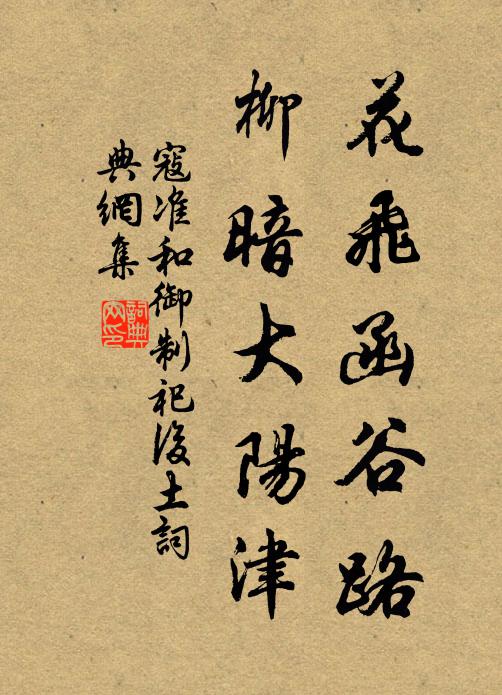 花飛函谷路
柳暗大陽津
寇准和御制祀後土詞
典網集
詞典
网印